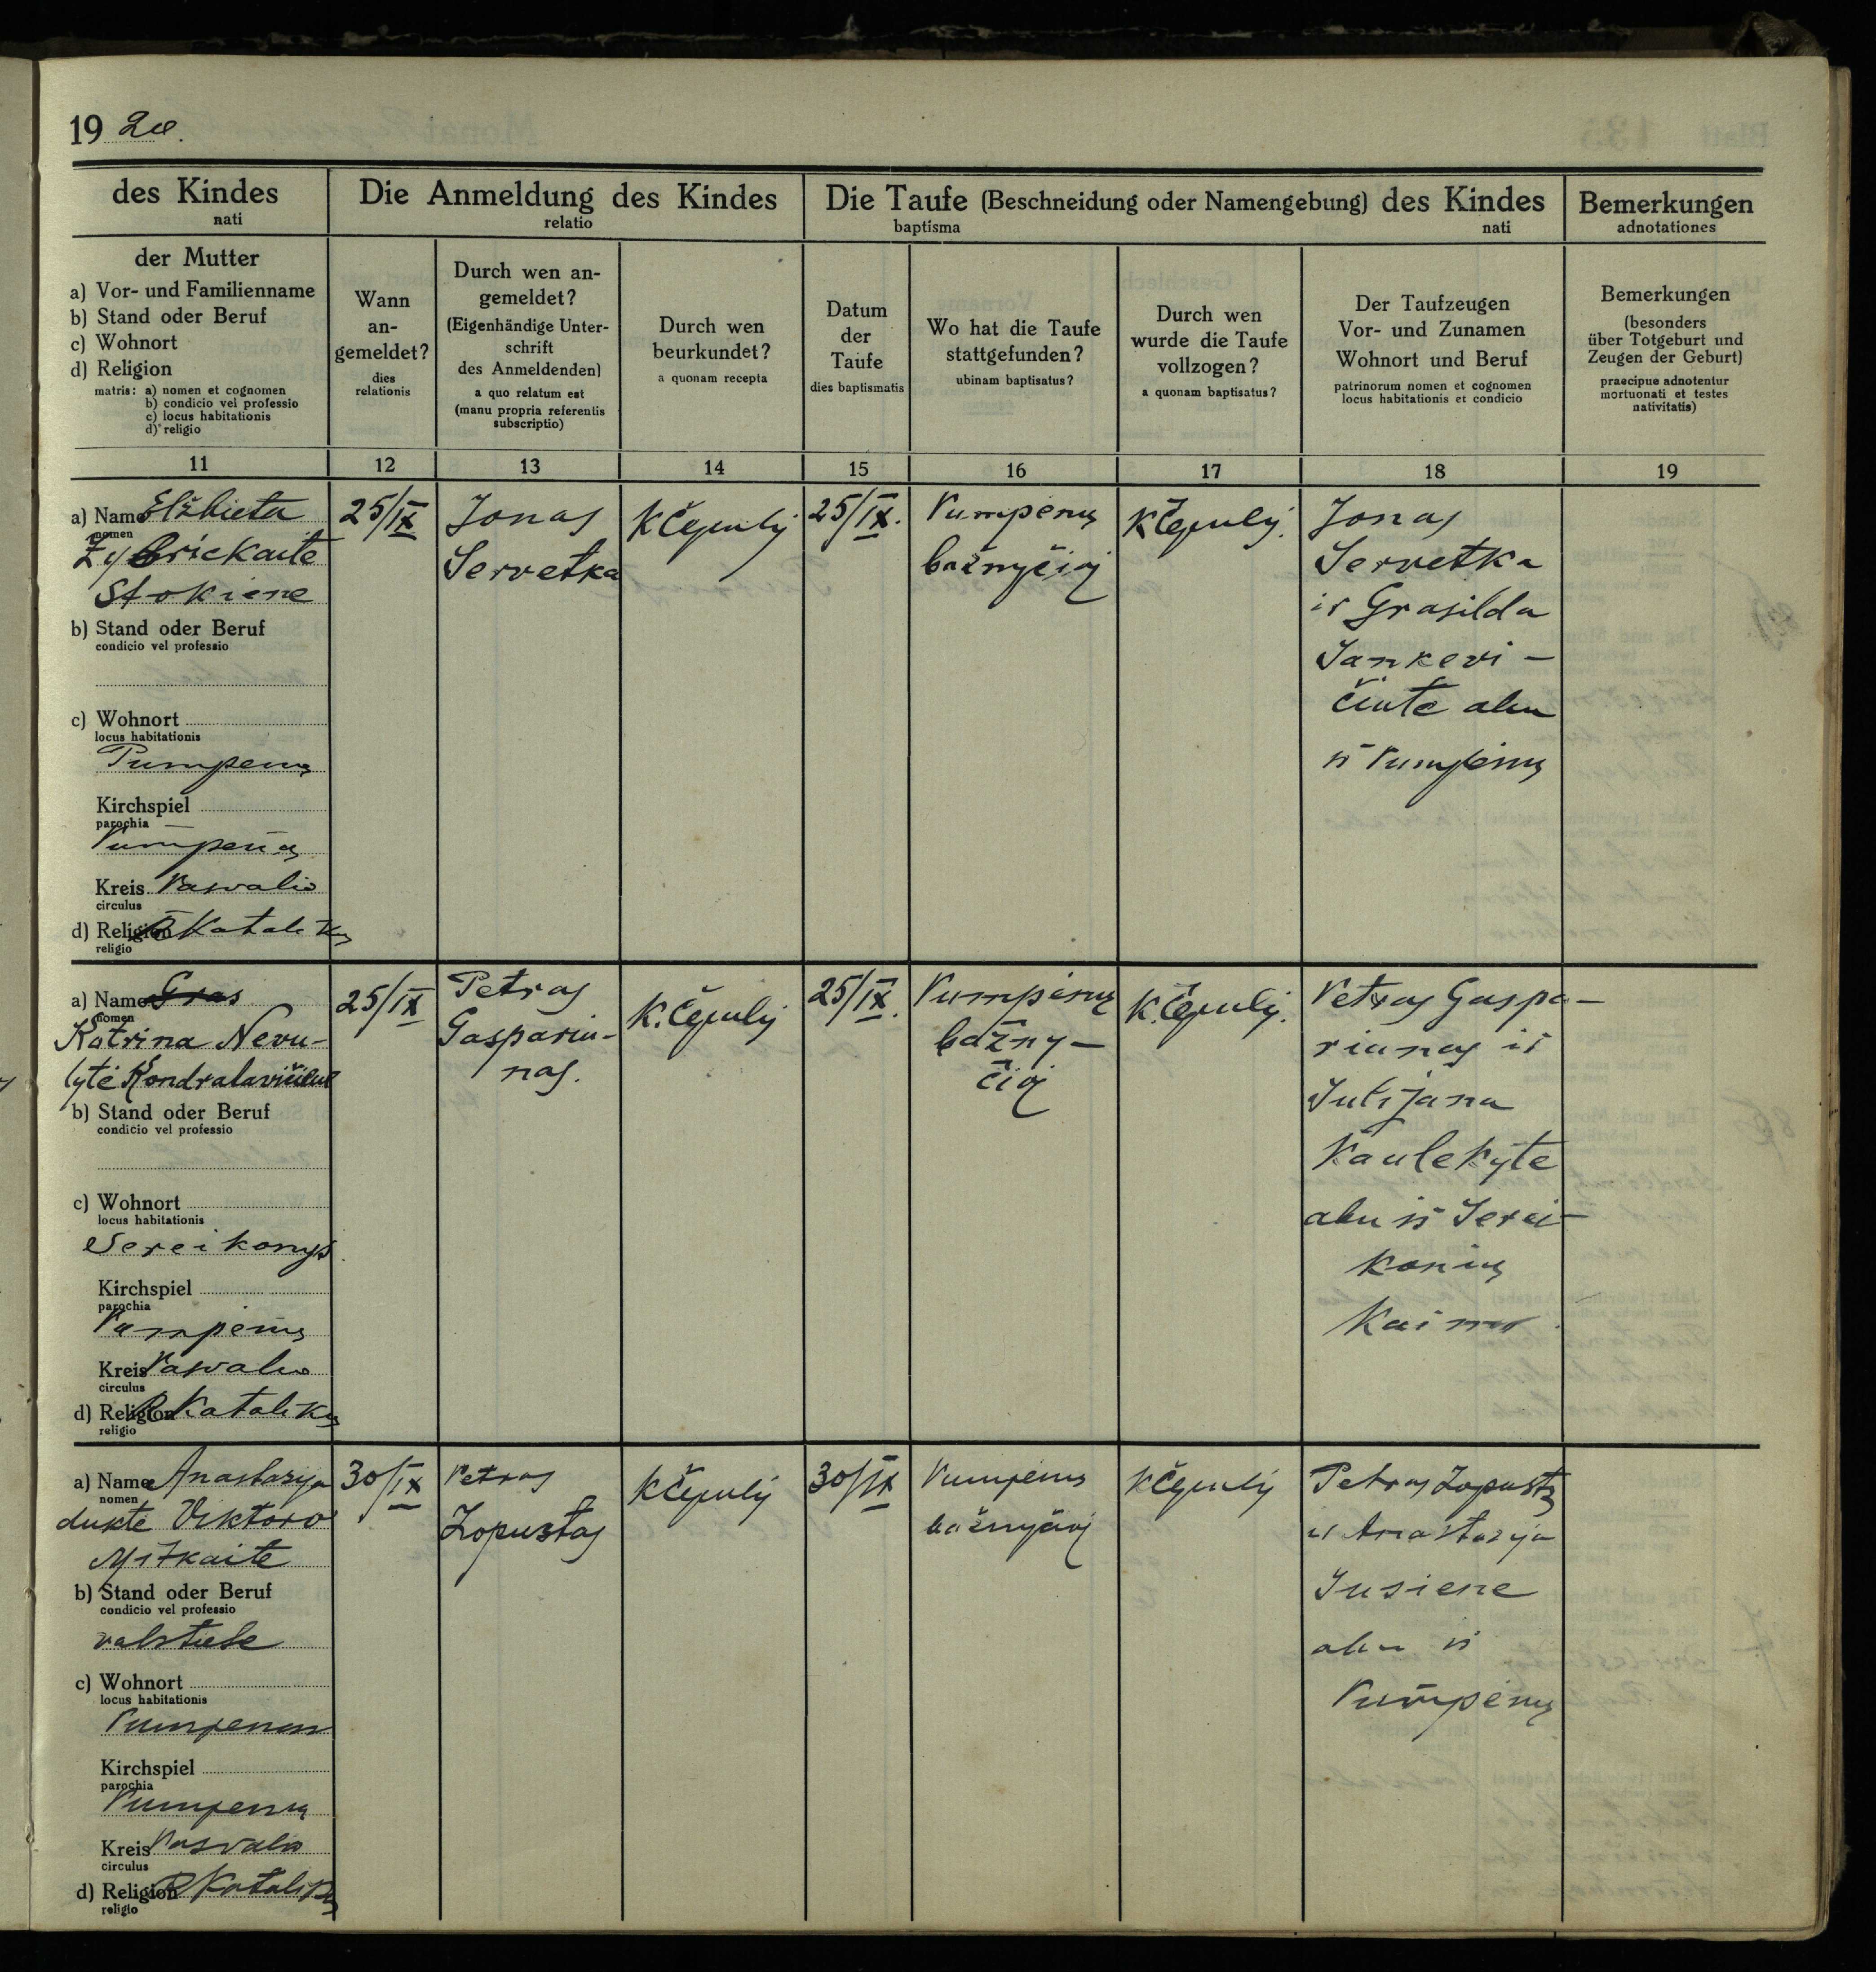 19 20.
des Kindes
nati
Die Anmeldung des Kindes
relatio
Die Taufe (Beschneidung oder Namengebung) des Kindes
baptisma nati
Bemerkungen
adnotationes
der Mutter
a) Vor- und Familienname
b) Stand oder Beruf
c) Wohnort
d) Religion
matris: a) nomen et cognomen
b) condicio vel professio
c) locus habitationis
d) religio
Wann
an-
gemeldet?
dies
relationis
Durch wen an-
gemeldet?
(Eigenhändige Unter-
schrift
des Anmeldenden)
a quo relatum est
(manu propria referentis
subscriptio)
Durch wen
beurkundet?
a quonam recepta
Datum
der
Taufe
dies baptismatis
Wo hat die Taufe
stattgefunden?
ubinam baptisatus?
Durch wen
wurde die Taufe
vollzogen?
a quonam baptisatus?
Der Taufzeugen
Vor- und Zunamen
Wohnort und Beruf
patrinorum nomen et cognomen
locus habitationis et condicio
Bemerkungen
(besonders
über Totgeburt und
Zeugen der Geburt)
praecipue adnotentur
mortuonati et testes
nativitatis)
11 12 13 14 15 16 17 18 19
a) Name Elžbieta
nomen
Zybrickaite
Stokiene
b) Stand oder Beruf
condicio vel professio
c) Wohnort
locus habitationis
Pumpenų
Kirchspiel
parochia
Pumpenų
Kreis Pasvalio
circulus
d) Religion R Katalikų
religio
25/IX
Jonas
Servetka
K Čepulį
25/IX.
Pumpenų
bažnyčioj
K Čepulį.
Jonas
Servetka
ir Grasilda
Jankevi-
čiute abu
iš Pumpėnų
a) Name Gras
nomen
Katrina Nevu-
lytė
b) Stand oder Beruf
condicio vel professio
c) Wohnort
locus habitationis
Sereikonys
Kirchspiel
parochia
Pumpėnų
Kreis Pasvalio
circulus
d) Religion R Katalikų
religio
25/IX
Petras
Gaspariu-
nas.
K. Čepulį
25/IX.
Pumpėnų
bažny-
čioj
K. Čepulį.
Petras Gaspa-
riunas ir
Julijana
Kaulekyte
abu iš Serei-
konių
Kaimo
a) Name Anastazija
nomen
duktė Viktoro
Mitkaite
b) Stand oder Beruf
condicio vel professio
valstietė
c) Wohnort
locus habitationis
Pumpenų
Kirchspiel
parochia
Pumpenų
Kreis Pasvalio
circulus
d) Religion R Katalikų
religio
30/IX
Petras
Zopustas
K Čepulį
30/IX
Pumpėnų
bažnyčioj
K Čepulį
Petras Zopustas
ir Anastazija
Jusiene
abu iš
Pumpėnų